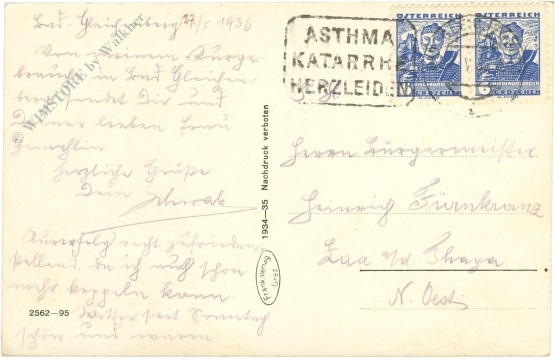 Bad Gleichenberg 27/5 1936
Von meinem Kurge-
brauche in Bad Gleichen-
berg sendet Dir und
Deiner lieben Frau
Gemahlin
herzliche Grüße
Dein Schwab
Kurerfolg recht zufrieden
stellend, da ich auch schon
mehr keppeln kann.
Wetter seit Sonntag
schön und warm.
2562—95
WIMSTORE by Walkner
1934—35 Nachdruck verboten
Frank-Verlag
Graz
ASTHMA
KATARRH
HERZLEIDEN
ÖSTERREICH
ÖSTERREICH
GROSCHEN
GROSCHEN
Herrn Bürgermeister
Heinrich Fürnkranz
Laa a/d. Thaya
N. Oest.